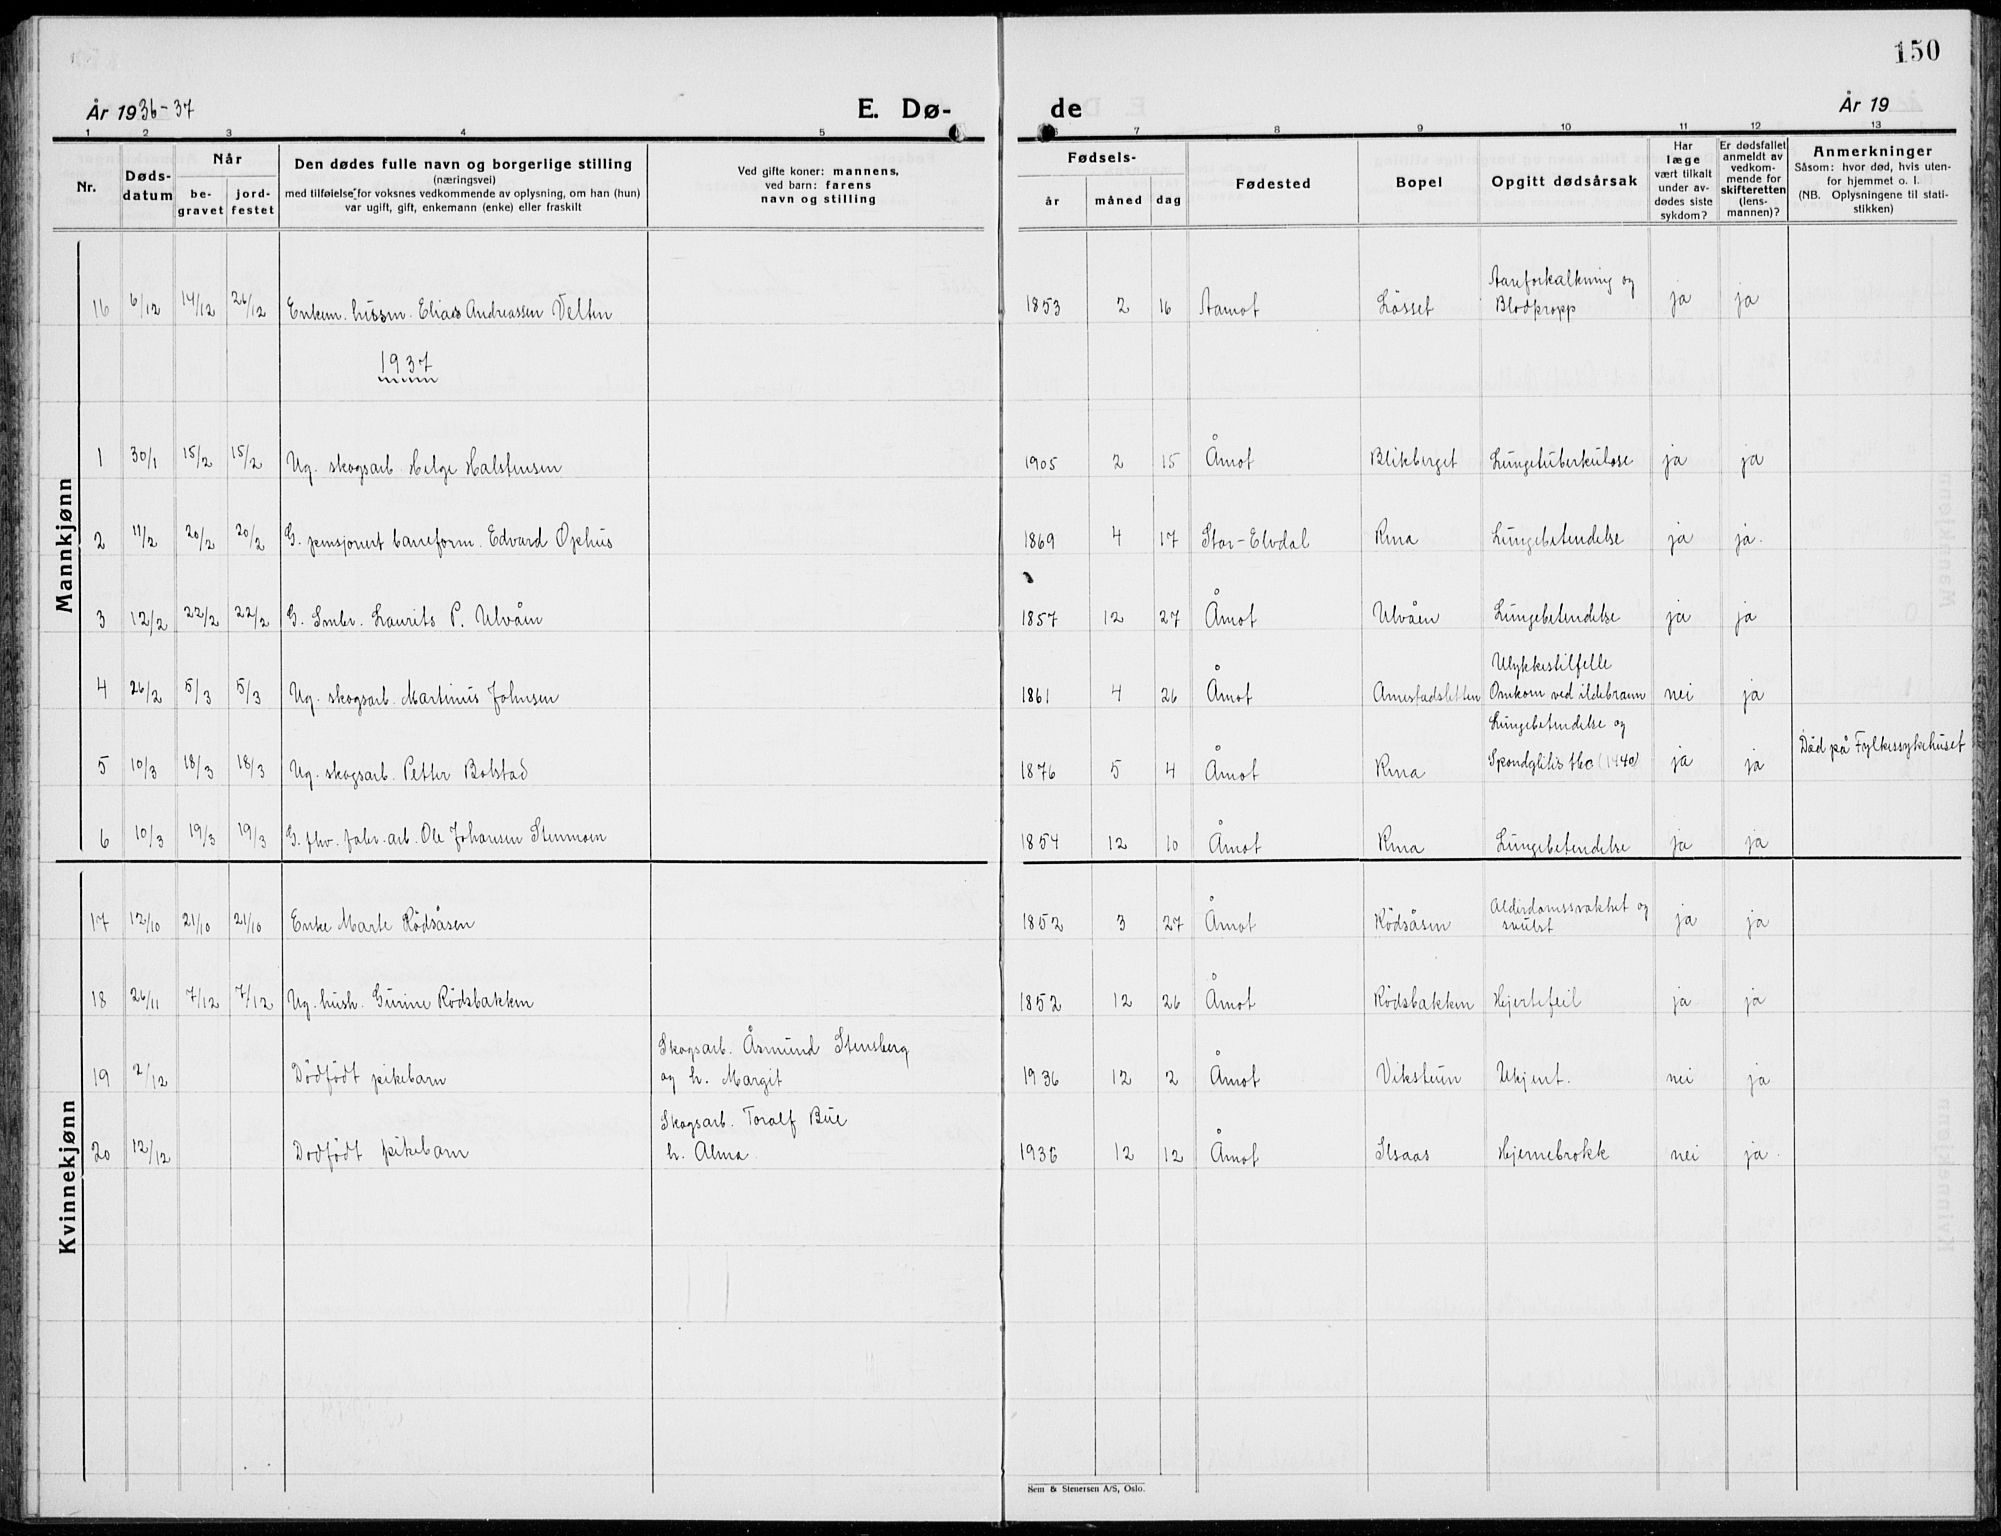 150
År 1936-37
E. Dø-
de
År 19
1 2 3 4 5 6 7 8 9 10 11 12 13
Nr.
Døds-
datum
Når
be-
gravet
jord-
festet
Den dødes fulle navn og borgerlige stilling
(næringsvei)
med tilføielse for voksnes vedkommende av oplysning, om han (hun)
var ugift, gift, enkemann (enke) eller fraskilt
Ved gifte koner: mannens,
ved barn: farens
navn og stilling
Fødsels-
år måned dag
Fødested
Bopel
Opgitt dødsårsak
Har
læge
vært tilkalt
under av-
dødes siste
sykdom?
Er dødsfallet
anmeldt av
vedkom-
mende for
skifteretten
(lens-
mannen)?
Anmerkninger
Såsom: hvor død, hvis uten-
for hjemmet o. l.
(NB. Oplysningene til stati-
stikken)
Mannkjønn
Aareforkalkning og
16 6/12 14/12 26/12 Enkem. husm. Elias Andreassen Velten 1853 2 16 Aamot Løsset Blodpropp ja ja
1937
1 30/1 15/2 15/2 Ug. skogsarb. Helge Halstensen 1905 2 15 Åmot Blikberget Lungetuberkulose ja ja
2 11/2 20/2 20/2 G. pensjonert baneform. Edvard Ophus 1869 4 17 Stor-Elvdal Rena Lungebetendelse ja ja.
3 12/2 22/2 22/2 G. Smbr. Laurits P. Ulvåen 1857 12 27 Åmot Ulvåen Lungebetendelse ja ja
Ulykkestilfelle
4 26/2 5/3 5/3 Ug. skogsarb. Martinus Johnsen 1861 4 26 Åmot Arnestadsletten Omkom ved ildebrann nei ja
Lungebetendelse og
Død på Fylkessykehuset
5 10/3 18/3 18/3 Ug. skogsarb. Petter Bolstad 1876 5 4 Åmot Rena Spondylitis tbc (1440) ja ja
6 10/3 19/3 19/3 G. fhv. fabr. arb. Ole Johansen Stenmoen 1854 12 10 Åmot Rena Lungebetendelse ja ja
Kvinnekjønn
Alderdomssvakhet og
17 12/10 21/10 21/10 Enke Marte Rödsåsen 1852 3 27 Åmot Rödsåsen svulst ja ja
18 26/11 7/12 7/12 Ug. hush. Gurine Rödsbakken 1852 12 26 Åmot Rödsbakken Hjertefeil ja ja
Skogsarb. Åsmund Stensberg
19 2/12 Dödfödt pikebarn og h. Margit 1936 12 2 Åmot Viksteun Ukjent. nei ja
Skogsarb. Toralf Bue
20 12/12 Dodfödt pikebarn h. Alma 1936 12 12 Åmot Ilsaas Hjernebrokk nei ja.
Sem & Stenersen A/S, Oslo.